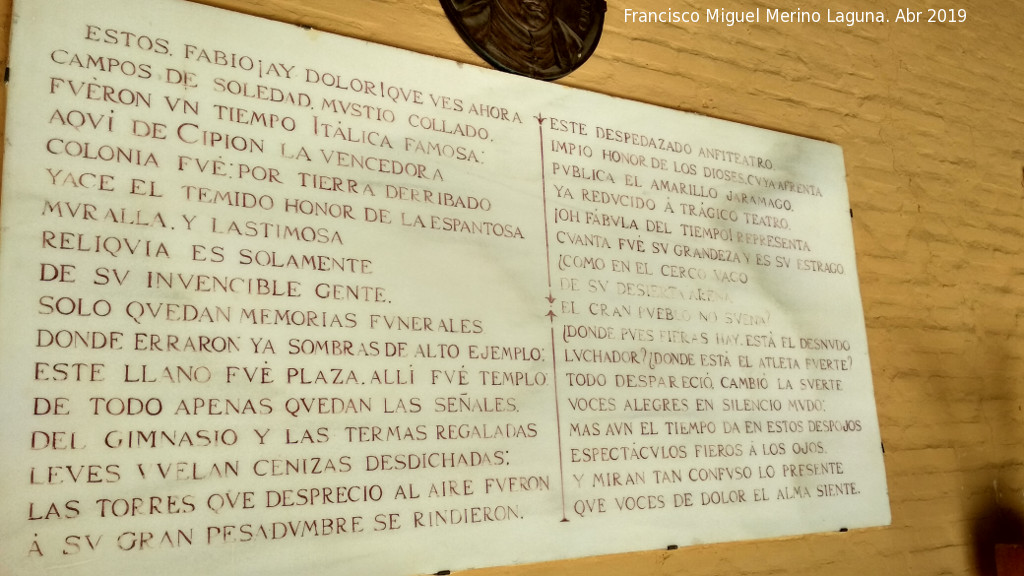 Francisco Miguel Merino Laguna. Abr 2019
ESTOS, FABIO ¡AY DOLOR! QVE VES AHORA
CAMPOS DE SOLEDAD, MVSTIO COLLADO,
FVÈRON VN TIEMPO ITÁLICA FAMOSA:
AQVÍ DE CIPION LA VENCEDORA
COLONIA FVÉ: POR TIERRA DERRIBADO
YACE EL TEMIDO HONOR DE LA ESPANTOSA
MVRALLA, Y LASTIMOSA
RELIQVIA ES SOLAMENTE
DE SV INVENCIBLE GENTE.
SOLO QVEDAN MEMORIAS FVNERALES
DONDE ERRARON YA SOMBRAS DE ALTO EJEMPLO:
ESTE LLANO FVÉ PLAZA, ALLÍ FVÉ TEMPLO:
DE TODO APENAS QVEDAN LAS SEÑALES.
DEL GIMNASIO Y LAS TERMAS REGALADAS
LEVES VVELAN CENIZAS DESDICHADAS:
LAS TORRES QVE DESPRECIO AL AIRE FVERON
Á SV GRAN PESADVMBRE SE RINDIERON.
ESTE DESPEDAZADO ANFITEATRO,
IMPIO HONOR DE LOS DIOSES, CVYA AFRENTA
PVBLICA EL AMARILLO JARAMAGO,
YA REDVCIDO Á TRÁGICO TEATRO,
¡OH FÁBVLA DEL TIEMPO! REPRESENTA
CVANTA FVÉ SV GRANDEZA Y ES SV ESTRAGO.
¿COMO EN EL CERCO VACO
DE SV DESIERTA ARENA
EL GRAN PVEBLO NO SVENA?
¿DONDE PVES FIERAS HAY, ESTÁ EL DESNVDO
LVCHADOR? ¿DONDE ESTÁ EL ATLETA FVERTE?
TODO DESPARECIÓ, CAMBIÓ LA SVERTE
VOCES ALEGRES EN SILENCIO MVDO:
MAS AVN EL TIEMPO DA EN ESTOS DESPOJOS
ESPECTÁCVLOS FIEROS Á LOS OJOS.
Y MIRAN TAN CONFVSO LO PRESENTE
QVE VOCES DE DOLOR EL ALMA SIENTE.